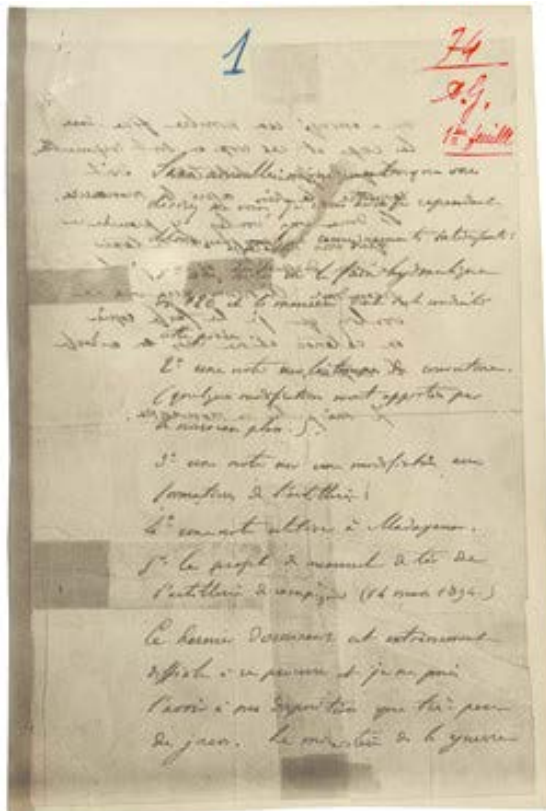 1
74
D.G.
1ère feuille
Sans nouvelles m'indiquant que vous
désirez me voir, je vous adresse cependant
Monsieur quelques renseignements intéressants:
1° une note sur le frein hydraulique
du 120 et la manière dont s'est conduite
2° une note sur les troupes de couverture.
(quelques modifications seront apportées par
le nouveau plan.).
3° une note sur une modification aux
formations de l'artillerie:
4° une note relative à Madagascar.
5° le projet de manuel de tir de
l'artillerie de campagne (14 mars 1894.)
Ce dernier document est extrêmement
difficile à se procurer et je ne puis
l'avoir à ma disposition que très peu
de jours. Le ministère de la guerre